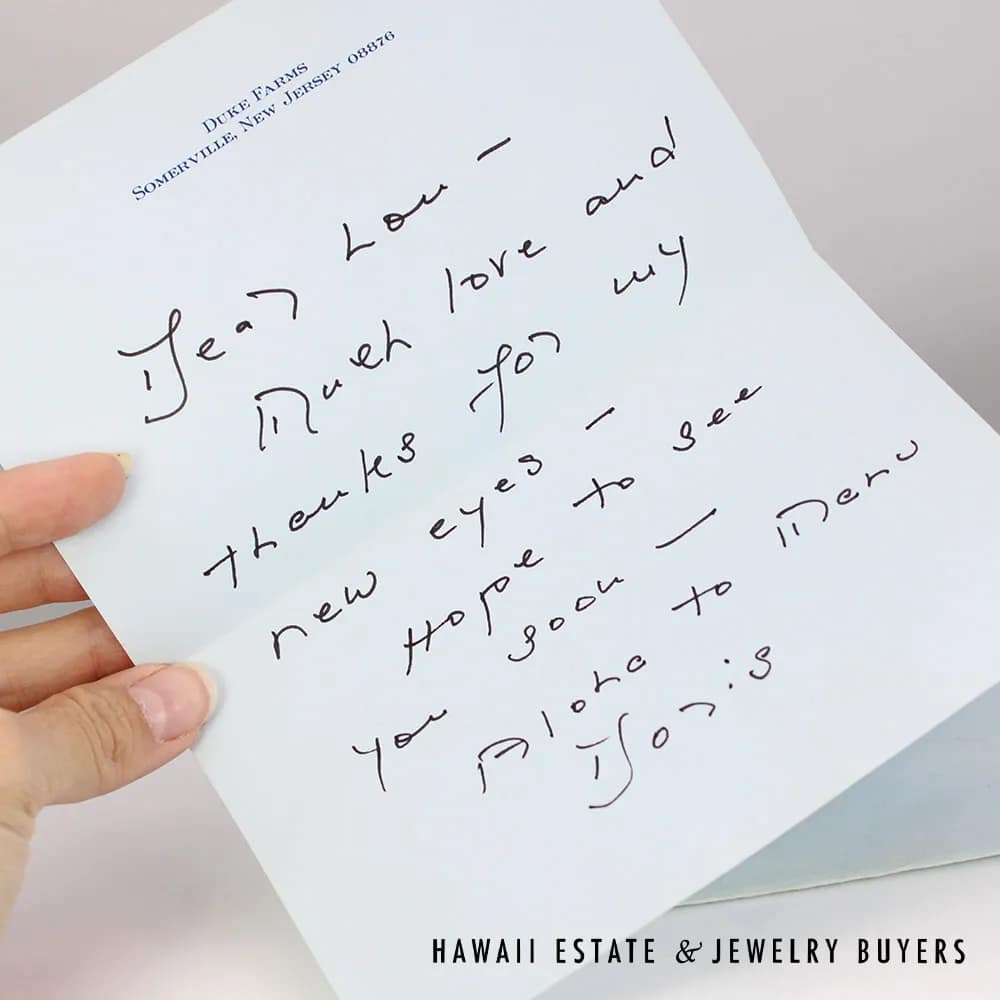 DUKE FARMS
SOMERVILLE, NEW JERSEY 08876
Dear Lou —
Much love and
thanks for my
new eyes —
Hope to see
you soon —
Aloha to
Doris
HAWAII ESTATE & JEWELRY BUYERS